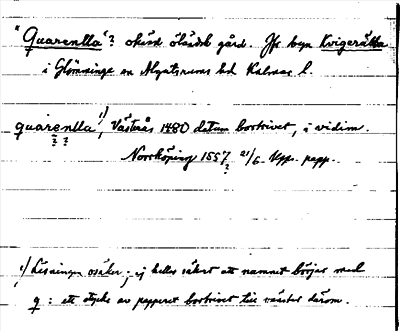 "Quarenlla"? okänd öländsk gård. Jfr byn Kvigerälla
i Glömminge sn Algutsrums hd Kalmar l.
quarenlla¹), Västerås 1480 datum bortrivet, i vidim.
? ?
Norrköping 1557 21/6 Upp. papp.
?
¹) Läsningen osäker; ej heller säkert att namnet börjar med
q: ett stycke av papperet bortrivet till vänster därom.